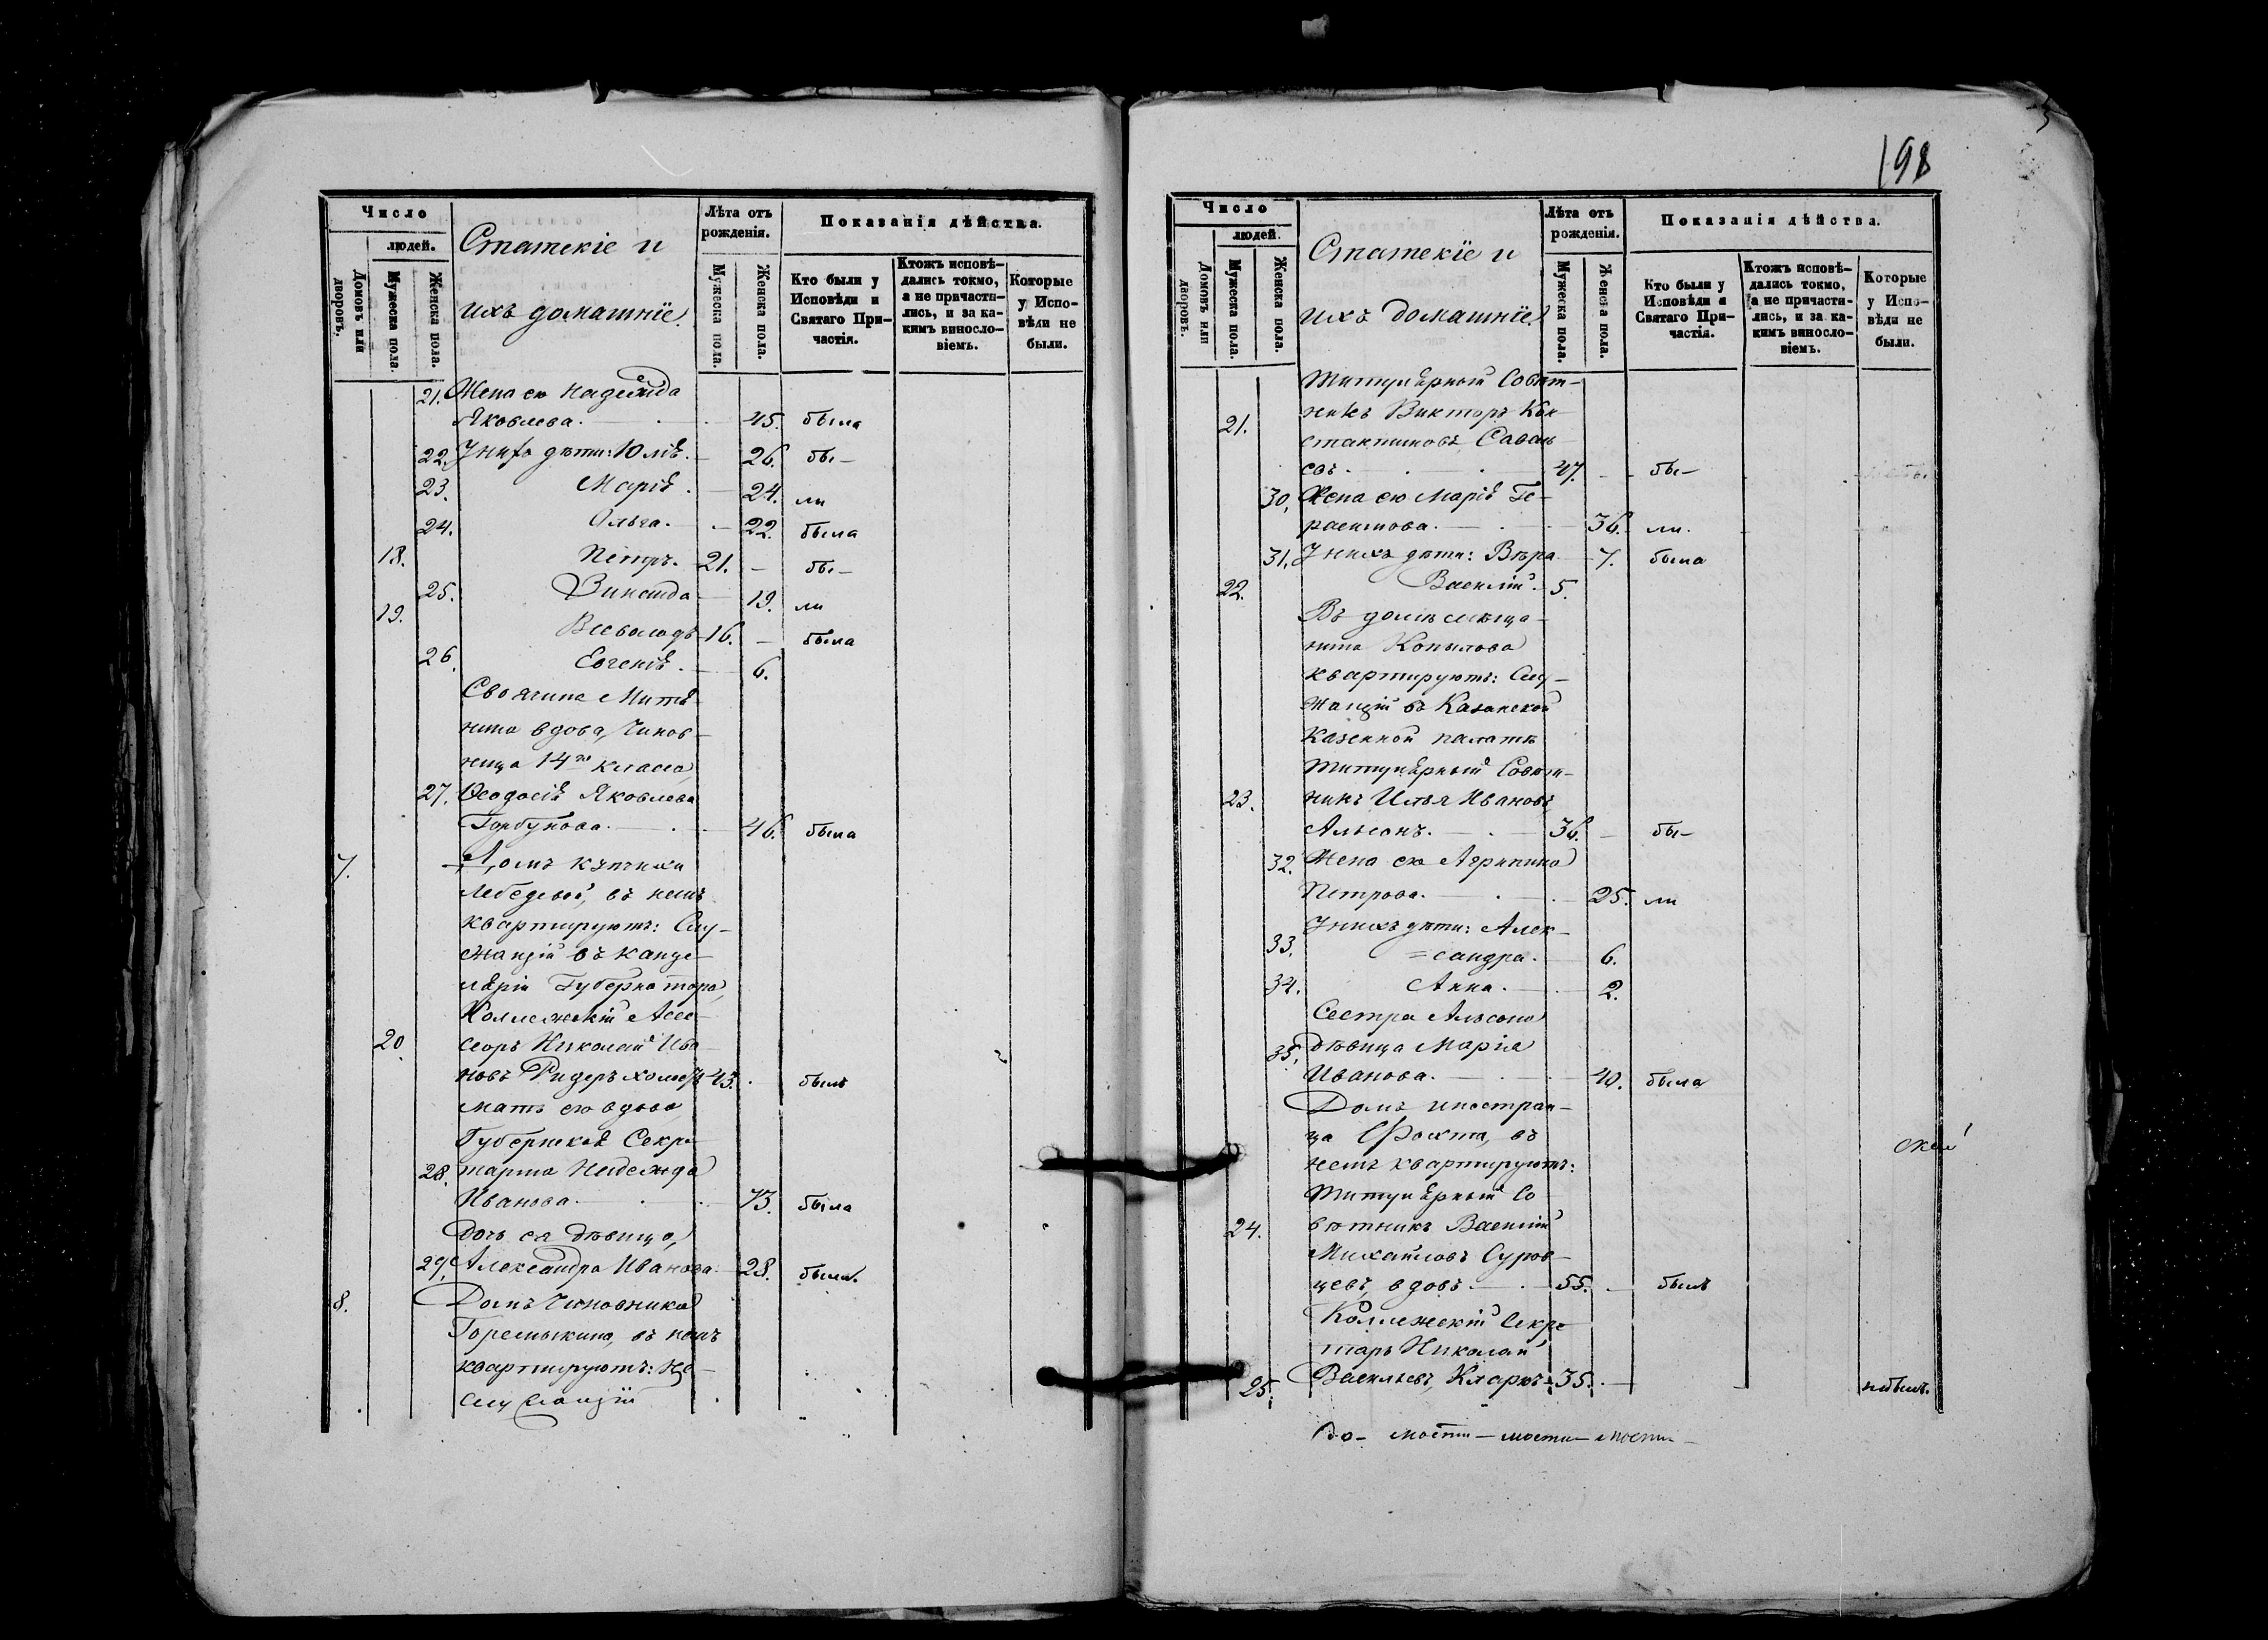 Число
людей.
Домовъ или дворовъ.
Мужеска пола.
Женска пола.
Статскіе и
ихъ домашніе.
Лѣта отъ
рожденія.
Мужеска пола.
Женска пола.
Показанія дѣйства.
Кто были у
Исповѣди и
Святаго При-
частія.
Ктожъ исповѣ-
дались токмо,
а не причасти-
лись, и за ка-
кимъ винсло-
віемъ.
Которые
у Испо-
вѣди не
были.
21. Жена его Надежда
Яковлева. 45. была
22. У нихъ дѣти: Юлія. 26. бы-
23. Марія. 24. ли
24. Ольга. 22. была
18. Петръ. 21. бы-
25. Зинаида 19. ли
19. Всеволодъ 16. была
26. Евгенія. 6.
Своячина Митя
нина вдова, Чинов-
ница 14го класса,
27. Ѳеодосія Яковлева
Горбунова. 46. была
7. Домъ купчихи
Лебедевой, въ немъ
квартируютъ: Слу-
жащій въ канце-
ляріи Губернатора,
Коллежскій Асес-
20. соръ Николай Ива
новъ Ридеръ холостъ 43. былъ
мать его вдова
Губернская Секре-
28. тарша Надежда
Иванова. 73. была
Дочь ея дѣвица,
29. Александра Иванова. 28. была.
8. Домъ Чиновника
Горемыкина, въ немъ
квартируютъ: Не-
служащій
198
Число
людей.
Домовъ или дворовъ.
Мужеска пола.
Женска пола.
Статскіе и
ихъ домашніе.
Лѣта отъ
рожденія.
Мужеска пола.
Женска пола.
Показанія дѣйства.
Кто были у
Исповѣди и
Святаго При-
частія.
Ктожъ исповѣ-
дались токмо,
а не причасти-
лись, и за ка-
кимъ винсло-
віемъ.
Которые
у Испо-
вѣди не
были.
Титулярный Совѣт-
21. никъ Викторъ Кон
стантиновъ
47. бы-
30. Жена его Марія Ге-
расимова. 36. ли.
31. У нихъ дѣти: Вѣра 7. была
22. Василій. 5.
Въ домѣ мѣща-
нина Копылова
квартируютъ: Слу-
жащій въ Казанской
Казенной палатѣ
Титулярный Совѣт-
23. никъ Илья Ивановъ
Альсонъ. 36. бы-
32. Жена его Агрипина
Петрова. 25. ли
У нихъ дѣти: Алек-
33. =сандра. 6.
34. Анна. 2.
Сестра Альсона
35. дѣвица Марія
Иванова. 40. была
Домъ иностран-
ца Фохта, въ
немъ квартируютъ:
Титулярный Со
24. вѣтникъ Василій
Михайловъ Суров-
цевъ, вдовъ. 55. былъ
Коллежскій Секре
тарь Николай
25. Васильевъ, Кларкъ 35. небылъ.